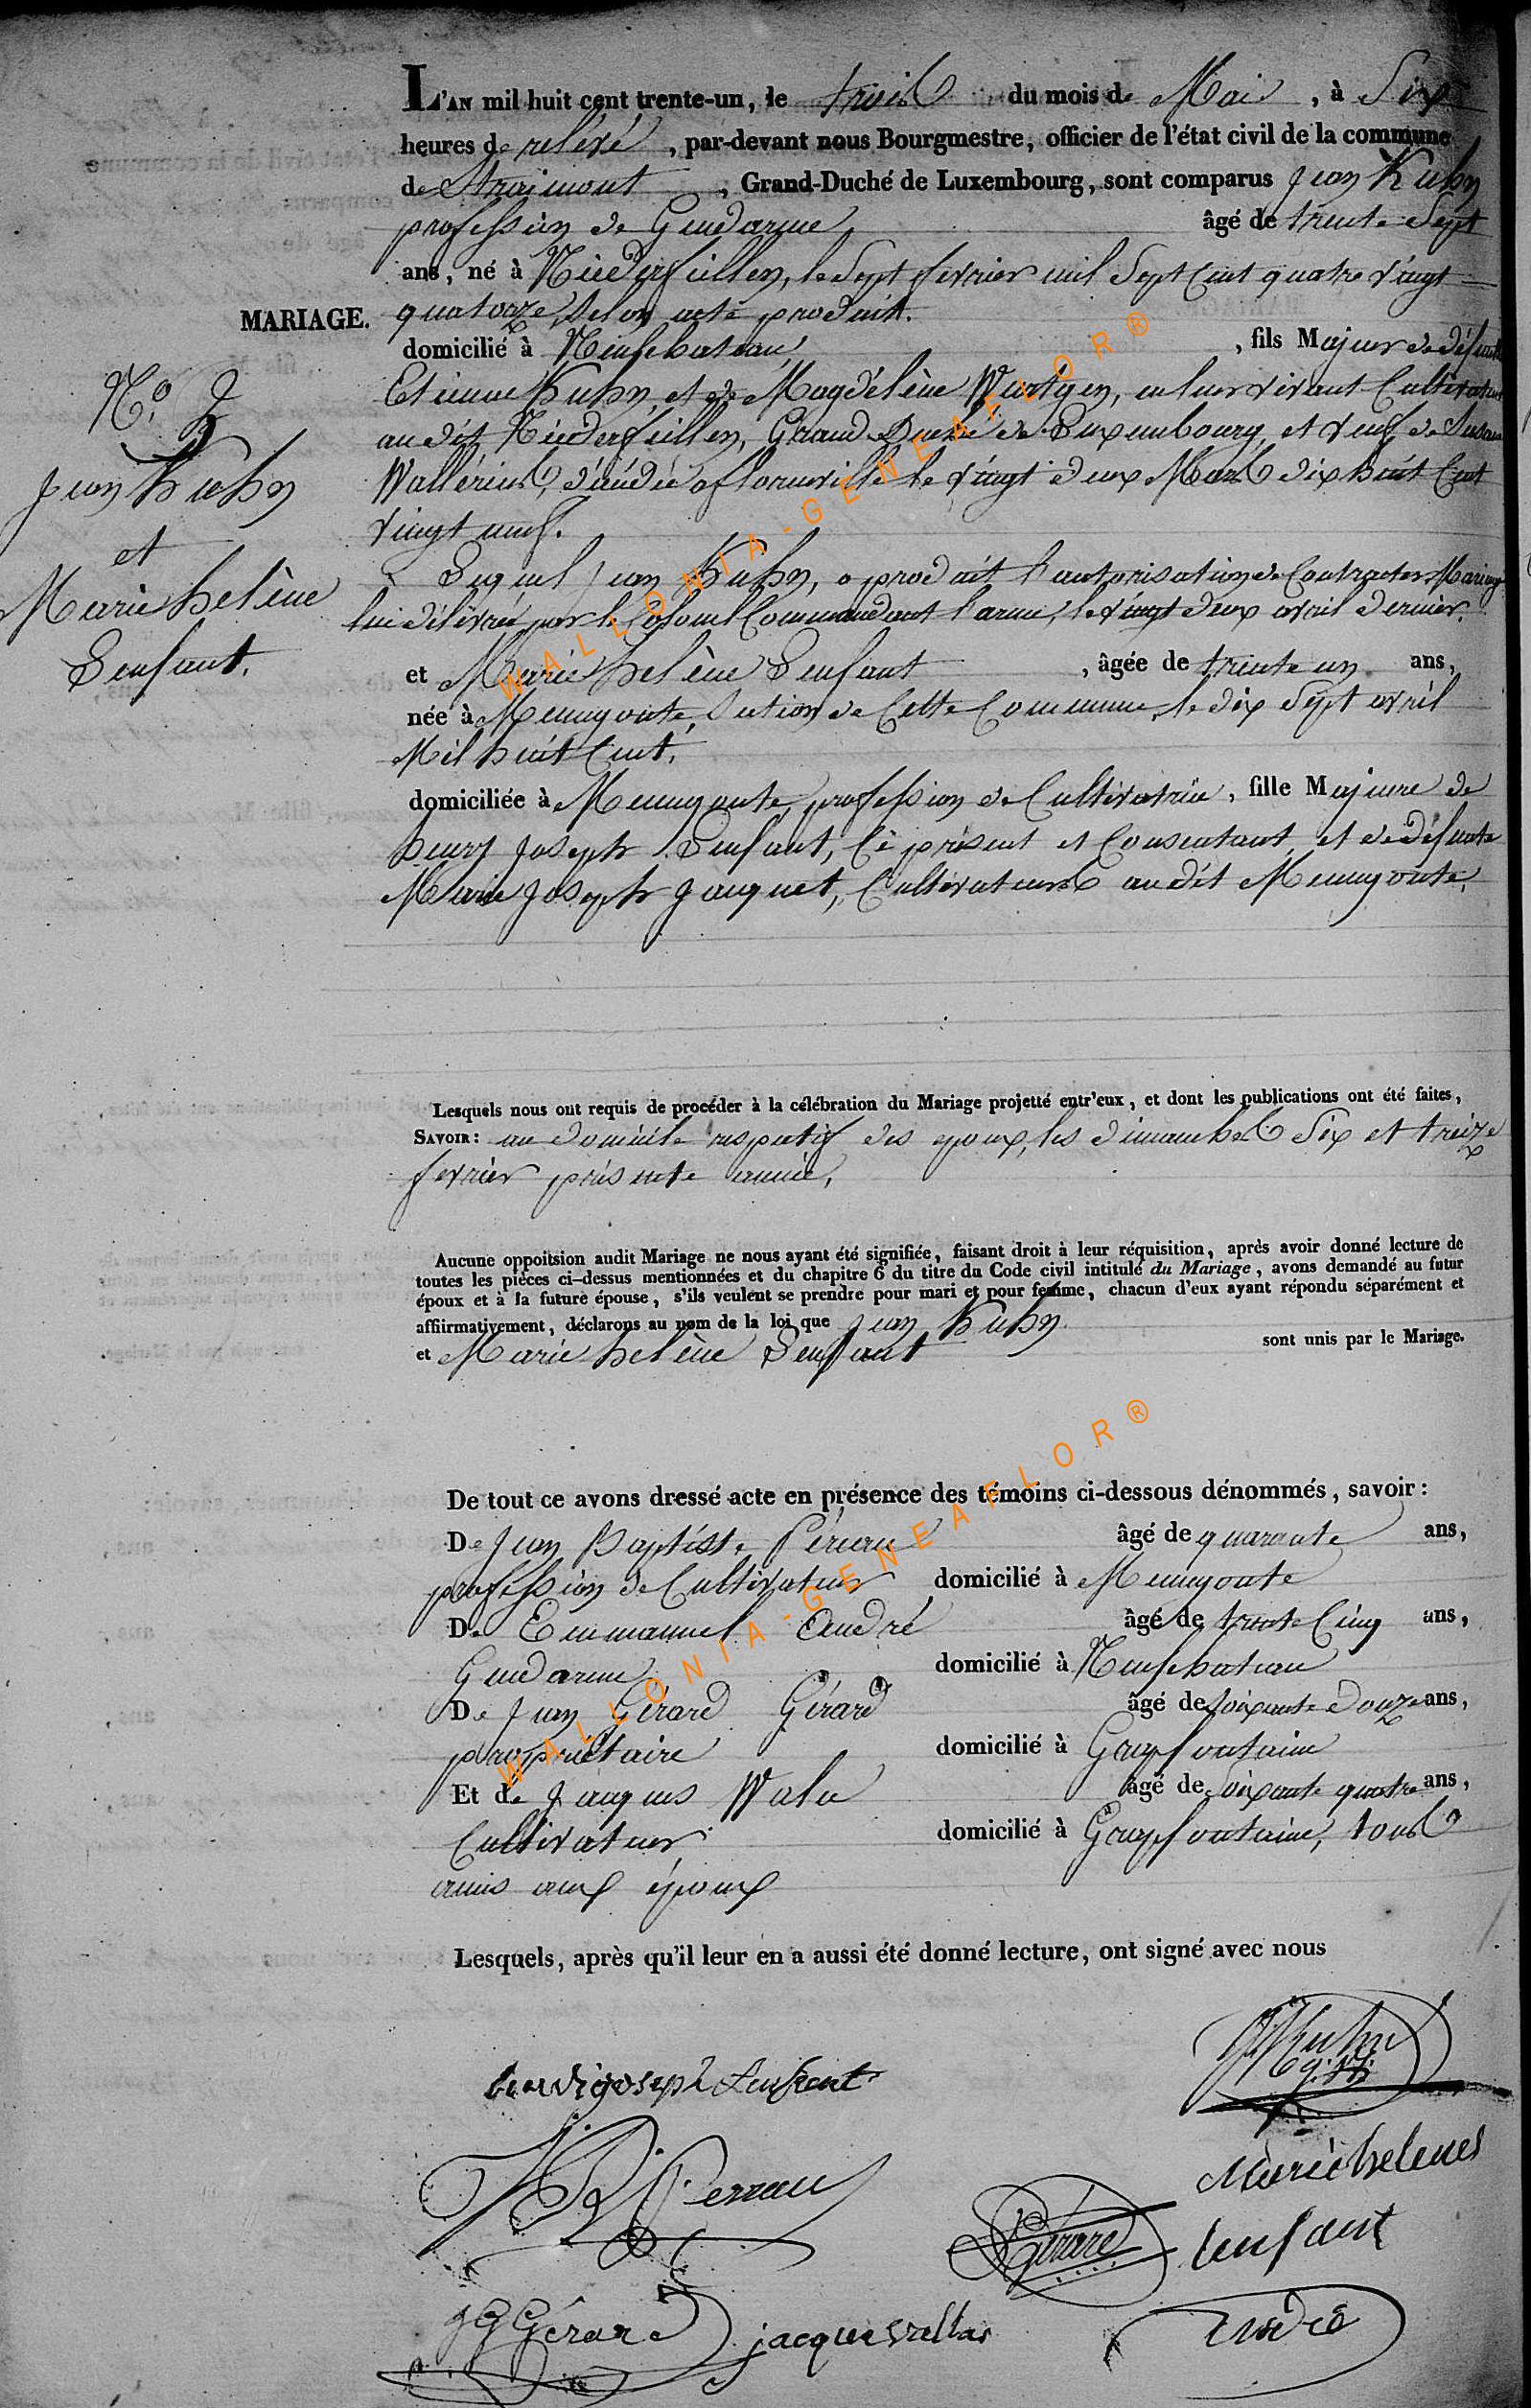 L'AN mil huit cent trente-un, le trois du mois de Mai, à Six
heures de relevé, par-devant nous Bourgmestre, officier de l'état civil de la commune
de Straimont, Grand-Duché de Luxembourg, sont comparus Jean Kuhn
profession de Gendarme âgé de trente Sept
ans, né à Niederfeillen, le Sept fevrier mil Sept Cent quatre vingt
quatorze, Selon acte produit.
MARIAGE.
domicilié à Neufchateau, fils Majeur de défunts
Etienne Kuhn, et de Magdélène Wurtgen, en leur vivant Cultivateurs
au dit Niederfeillen, Grand Duché de Luxembourg, et veuf de Susanne
Wallérius, décédée a florenville le vingt deux Mars dix huit Cent
vingt neuf.
Lequel Jean Kuhn, a produit l'autorisation de Contracter Mariage
lui délivrée par le Colonel Commandant l'arme, le vingt deux avril dernier.
N.º 2
Jean Kuhn
et
Marie helène
Lenfant.
et Marie helène Lenfant, âgée de trente un ans,
née à Menugoute, Section de Cette Commune, le dix Sept avril
Mil huit Cent.
domiciliée à Menugoute, profession de Cultivatrice, fille Majeure de
henry Joseph Lenfant, Ci présent et Consentant, et de défunte
Marie Joseph Jacquet, Cultivateurs au dit Menugoute.
Lesquels nous ont requis de procéder à la célébration du Mariage projetté entr'eux, et dont les publications ont été faites,
SAVOIR: au domicile respectif des epoux, les dimanches Six et treize
fevrier présente année.
Aucune oppoitsion audit Mariage ne nous ayant été signifiée, faisant droit à leur réquisition, après avoir donné lecture de
toutes les pièces ci-dessus mentionnées et du chapitre 6 du titre du Code civil intitulé du Mariage, avons demandé au futur
époux et à la future épouse, s'ils veulent se prendre pour mari et pour femme, chacun d'eux ayant répondu séparément et
affiirmativement, déclarons au nom de la loi que Jean Kuhn
et Marie helène Lenfant sont unis par le Mariage.
De tout ce avons dressé acte en présence des témoins ci-dessous dénommés, savoir:
De Jean Baptiste Pérau âgé de quarante ans,
profession de Cultivateur domicilié à Menugoute
De Emmanuel André âgé de trente Cinq ans,
Gendarme domicilié à Neufchateau
De Jean Gérard Gérard âgé de Soixante Douze ans,
propriétaire domicilié à Grapfontaine
Et de Jacques Wala âgé de Soixante quatre ans,
Cultivateur domicilié à Grapfontaine, tous
amis aux époux
Lesquels, après qu'il leur en a aussi été donné lecture, ont signé avec nous
J. Kuhn
henri joseph Lenfent
Marie helenes
JB Perrau
Gérard
lenfant
JG Gérard
jacque vallas
André
WALLONIA-GENEAFLOR®
WALLONIA-GENEAFLOR®